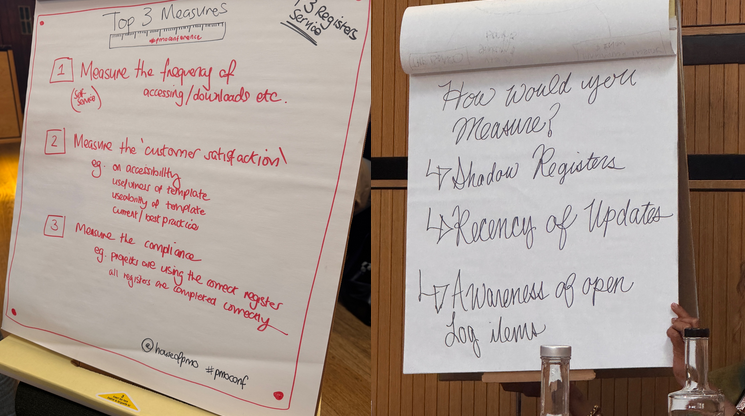 Top 3 Measures
#pmoconference
13 Registers
Service
1 Measure the frequency of
(Self Service) accessing/downloads etc.
2 Measure the 'customer satisfaction'
eg. on accessibility
usefulness of template
useability of template
current/best practices
3 Measure the compliance
eg. projects are using the correct register
all registers are completed correctly
@houseofpmo #pmoconf
How would you
Measure?
↳ Shadow Registers
↳ Recency of Updates
↳ Awareness of open
Log items